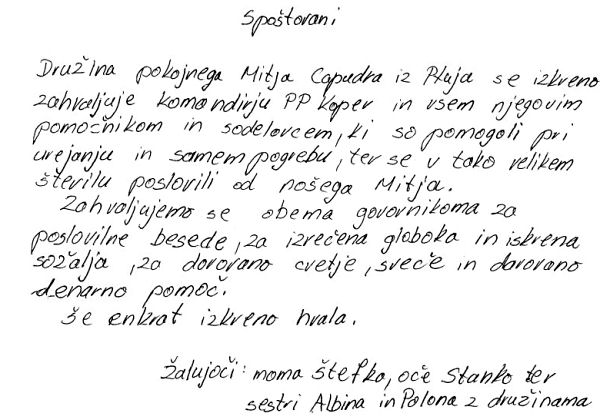 Spoštovani
Družina pokojnega Mitja Capudra iz Ptuja se izkreno
zahvaljuje komandirju PP Koper in vsem njegovim
pomočnikom in sodelovcem, ki so pomogali pri
urejanju in samem pogrebu, ter se v tako velikem
številu poslovili od našega Mitja.
Zahvaljujemo se obema govornikoma za
poslovilne besede, za izrečena globoka in iskrena
sožalja, za darovano cvetje, sveče in darovano
denarno pomoč.
Še enkrat izkreno hvala.
Žalujoči: mama Štefka, oče Stanko ter
sestri Albina in Polona z družinama